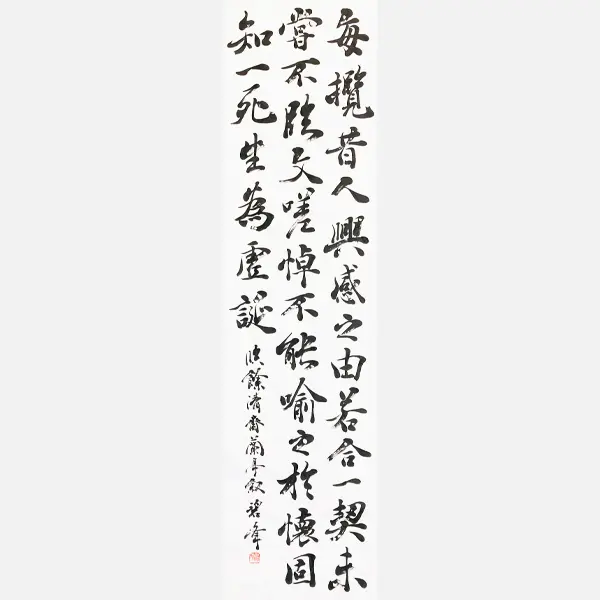 每攬昔人興感之由若合一契未
嘗不臨文嗟悼不能喻之於懷固
知一死生為虛誕
臨餘清齋蘭亭叙碧峰